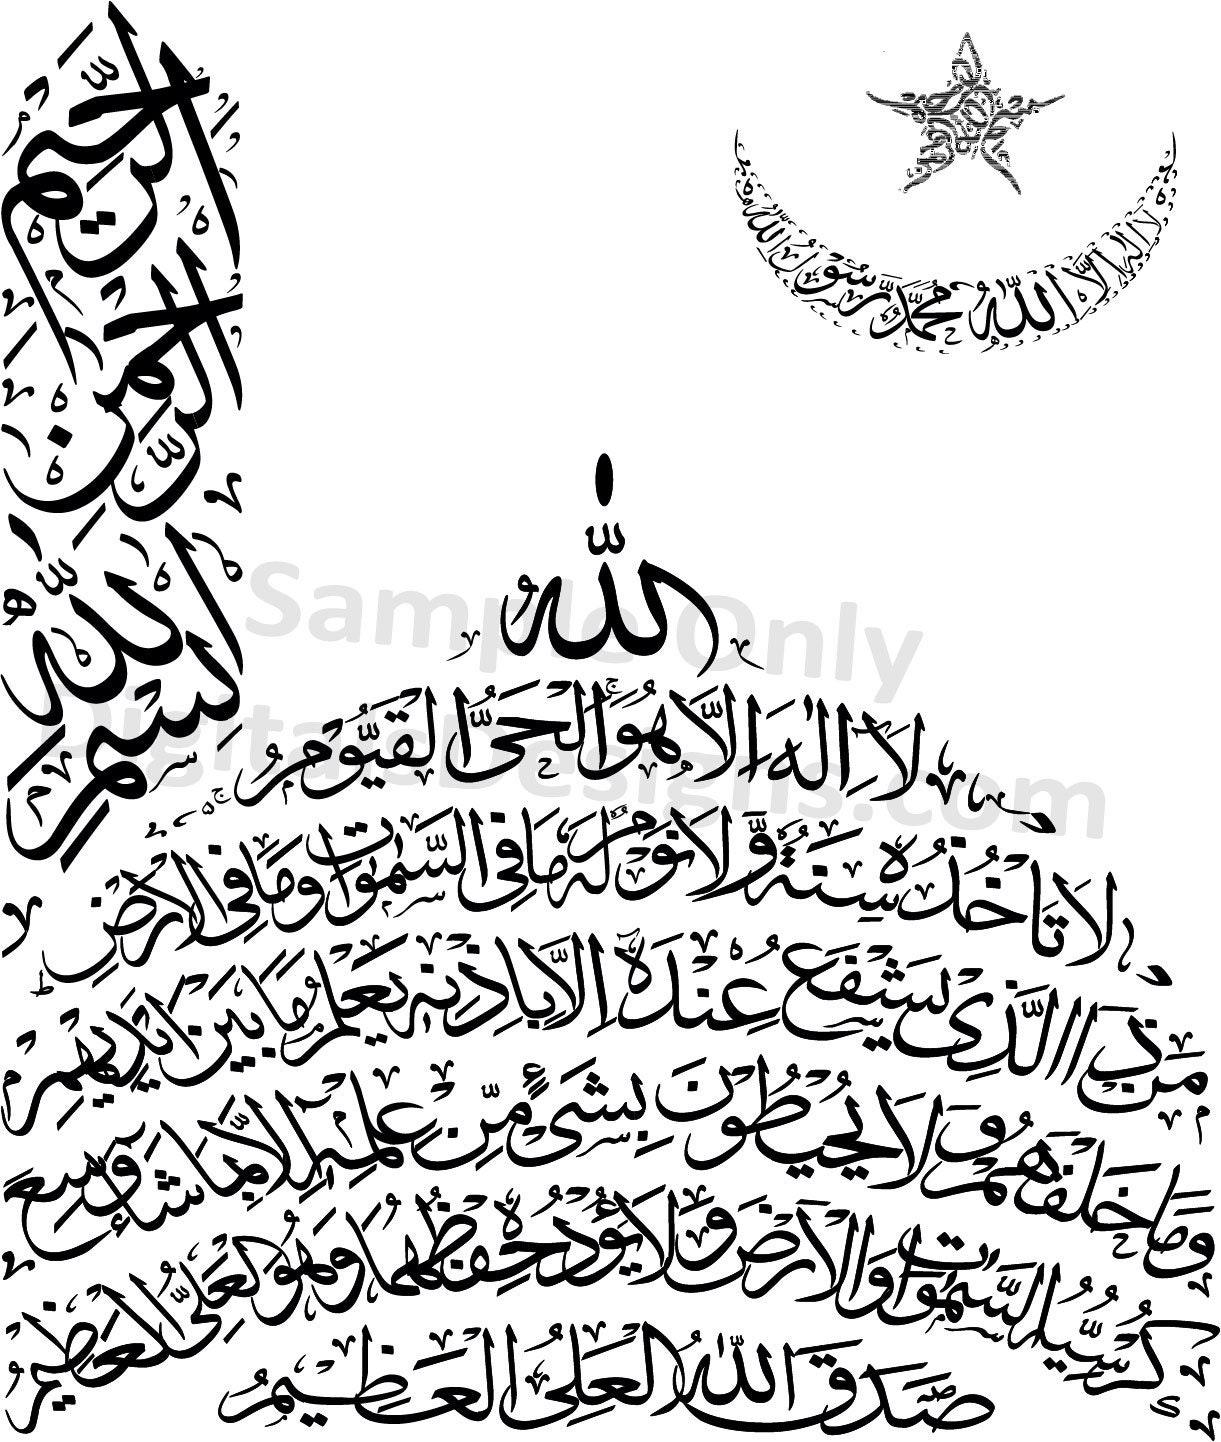 بِسْمِ اللّٰهِ الرَّحْمٰنِ الرَّحِيْمِ
لَا اِلٰهَ اِلَّا اللّٰهُ مُحَمَّدٌ رَّسُوْلُ اللّٰهِ
اللّٰهُ
لَا اِلٰهَ اِلَّا هُوَ الْحَىُّ الْقَيُّوْمُ
لَا تَاْخُذُهٗ سِنَةٌ وَّلَا نَوْمٌ لَهٗ مَا فِى السَّمٰوٰتِ وَمَا فِى الْاَرْضِ
مَنْ ذَا الَّذِىْ يَشْفَعُ عِنْدَهٗ اِلَّا بِاِذْنِهٖ يَعْلَمُ مَا بَيْنَ اَيْدِيْهِمْ
وَمَا خَلْفَهُمْ وَلَا يُحِيْطُوْنَ بِشَىْءٍ مِّنْ عِلْمِهٖ اِلَّا بِمَا شَآءَ وَسِعَ
كُرْسِيُّهُ السَّمٰوٰتِ وَالْاَرْضَ وَلَا يَؤُدُهٗ حِفْظُهُمَا وَهُوَ الْعَلِىُّ الْعَظِيْمُ
صَدَقَ اللّٰهُ الْعَلِىُّ الْعَظِيْمُ
Sample Only
DigitalsDesigns.com